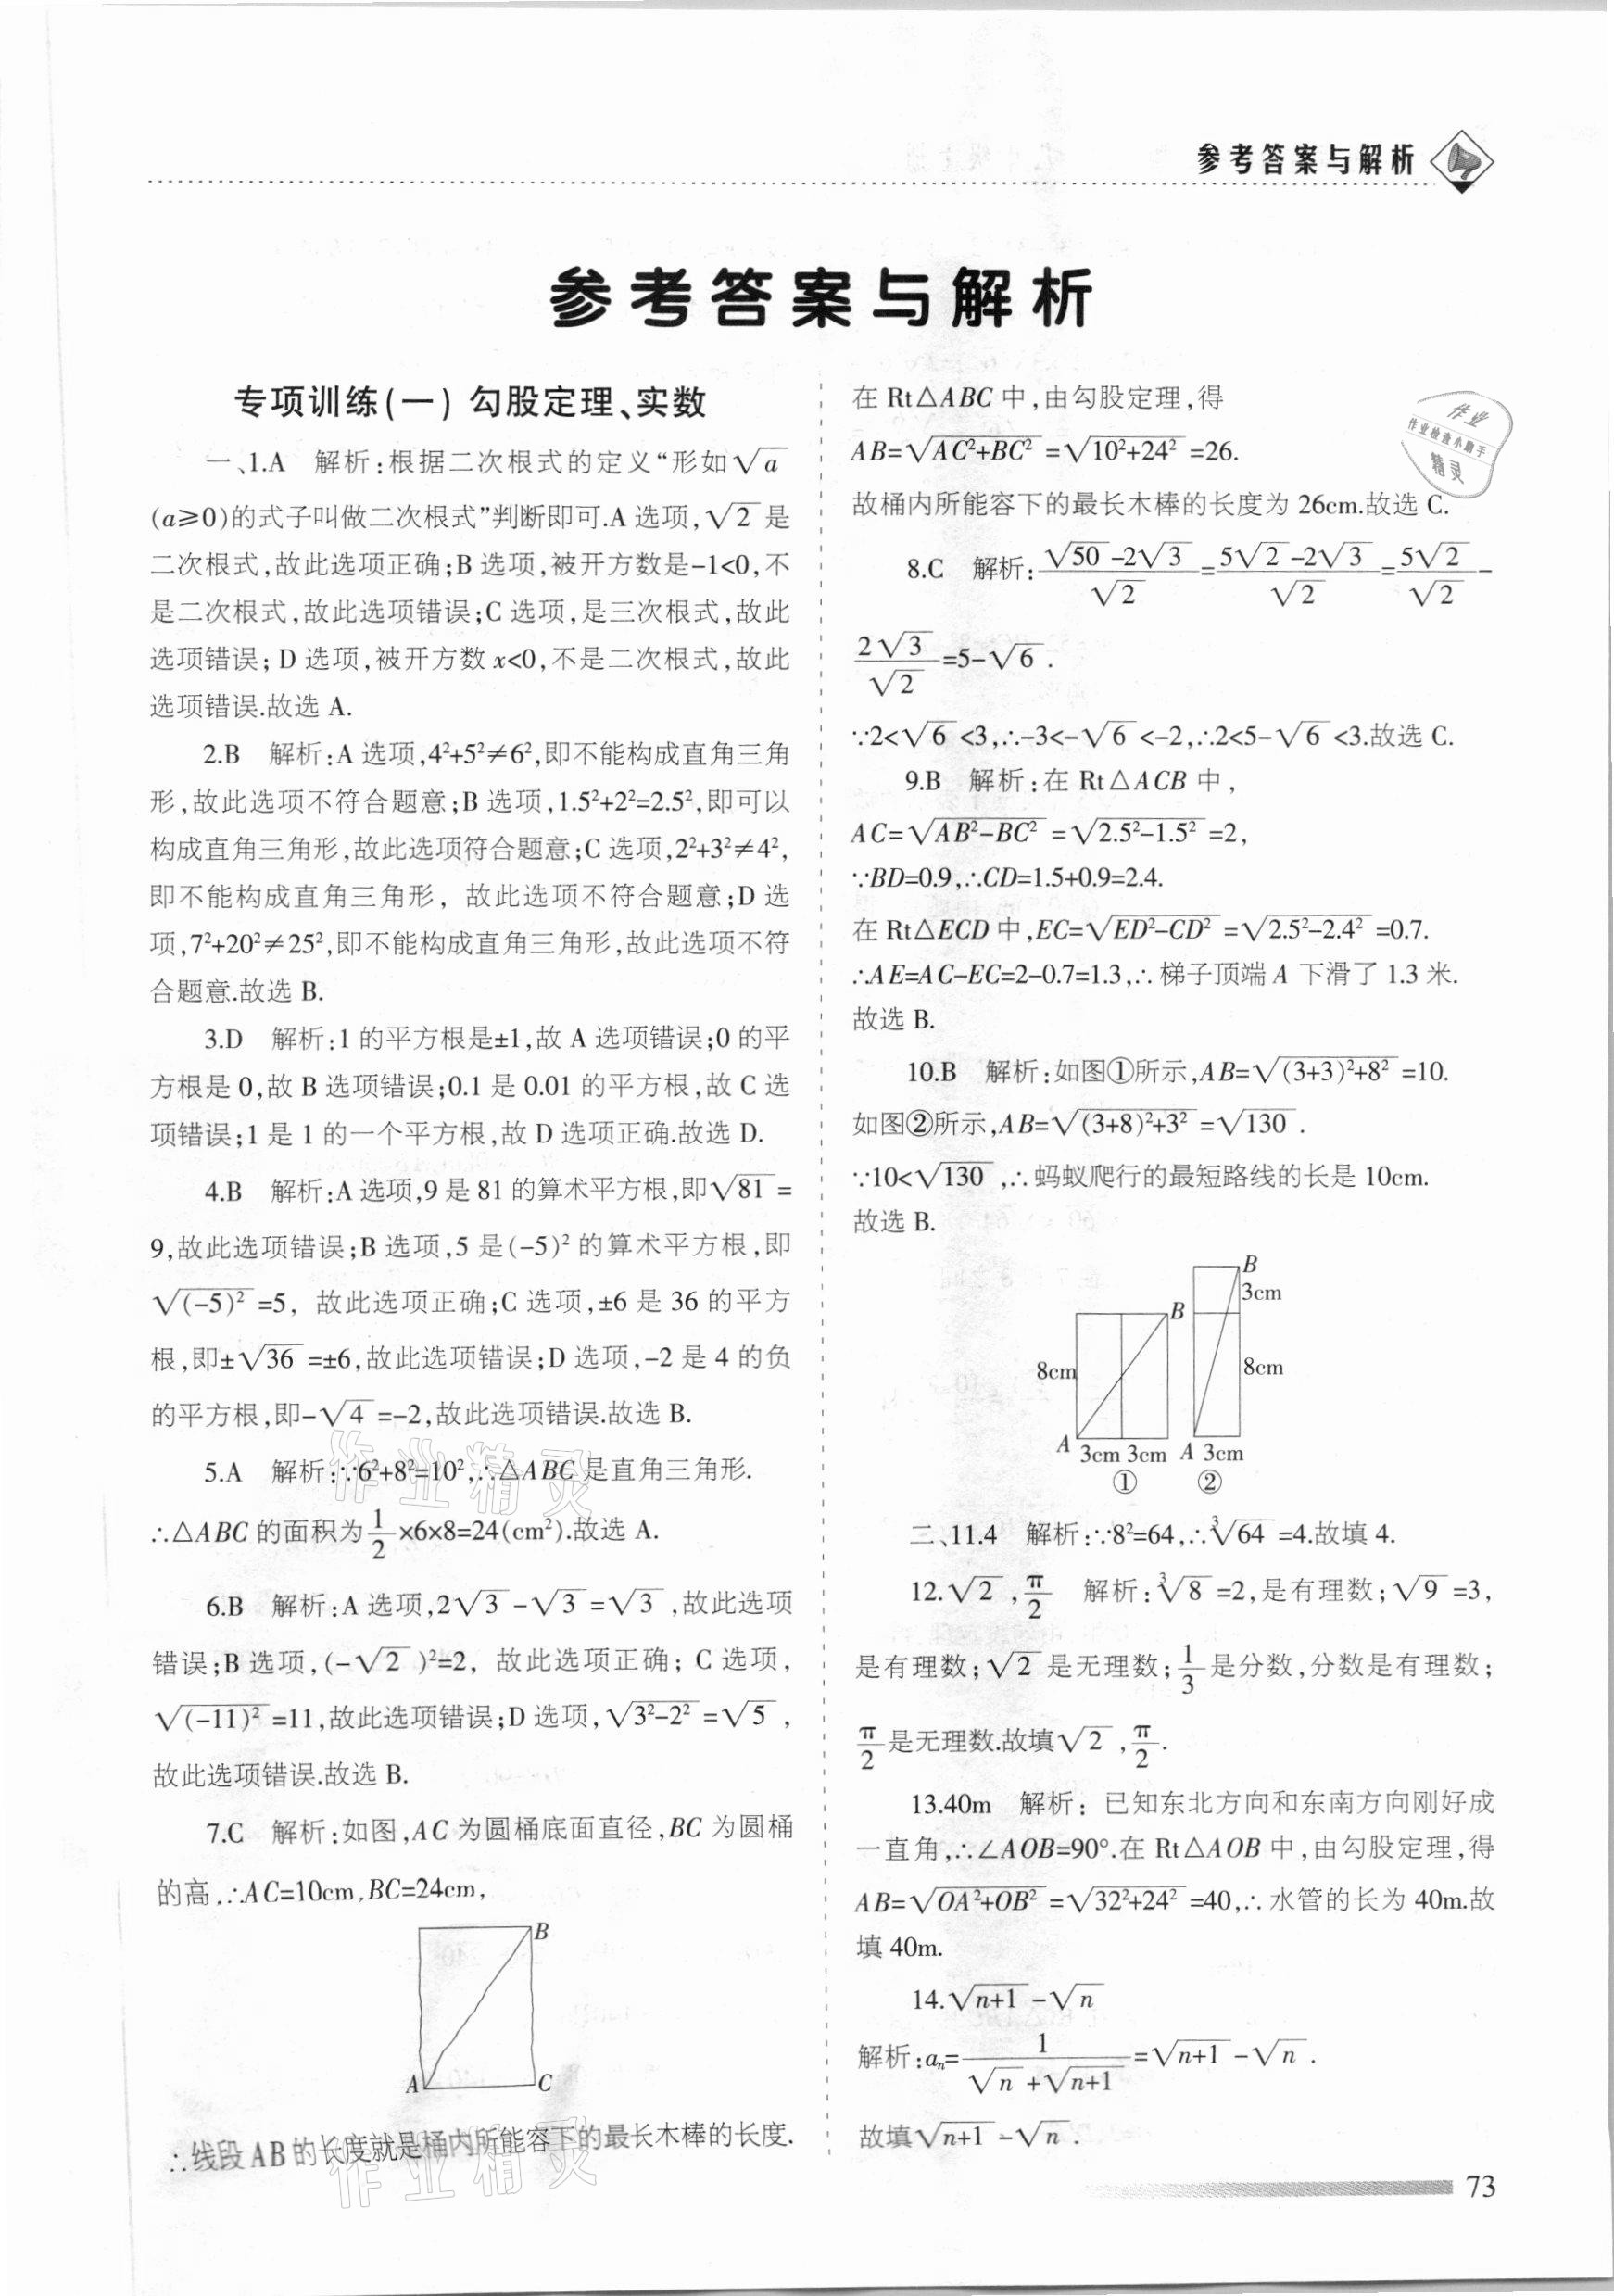 参考答案与解析
参考答案与解析
专项训练(一) 勾股定理、实数
一、1.A 解析:根据二次根式的定义“形如√a
(a≥0)的式子叫做二次根式”判断即可.A 选项,√2 是
二次根式,故此选项正确;B 选项,被开方数是-1<0,不
是二次根式,故此选项错误;C 选项,是三次根式,故此
选项错误; D 选项,被开方数 x<0,不是二次根式,故此
选项错误.故选 A.
2.B 解析:A 选项,4²+5²≠6²,即不能构成直角三角
形,故此选项不符合题意;B 选项,1.5²+2²=2.5²,即可以
构成直角三角形,故此选项符合题意;C 选项,2²+3²≠4²,
即不能构成直角三角形, 故此选项不符合题意;D 选
项,7²+20²≠25²,即不能构成直角三角形,故此选项不符
合题意.故选 B.
3.D 解析:1 的平方根是±1,故 A 选项错误;0 的平
方根是 0,故 B 选项错误;0.1 是 0.01 的平方根,故 C 选
项错误;1 是 1 的一个平方根,故 D 选项正确.故选 D.
4.B 解析:A 选项,9 是 81 的算术平方根,即√81 =
9,故此选项错误;B 选项,5 是(-5)² 的算术平方根,即
√(-5)² =5, 故此选项正确;C 选项,±6 是 36 的平方
根,即±√36 =±6,故此选项错误;D 选项,-2 是 4 的负
的平方根,即-√4 =-2,故此选项错误.故选 B.
5.A 解析:∵6²+8²=10²,∴△ABC 是直角三角形.
∴△ABC 的面积为 1/2 ×6×8=24(cm²).故选 A.
6.B 解析:A 选项,2√3 -√3 =√3 ,故此选项
错误;B 选项,(-√2 )²=2, 故此选项正确; C 选项,
√(-11)² =11,故此选项错误;D 选项,√(3²-2²) =√5 ,
故此选项错误.故选 B.
7.C 解析:如图,AC 为圆桶底面直径,BC 为圆桶
的高.∴AC=10cm,BC=24cm,
B
A
C
∴线段 AB 的长度就是桶内所能容下的最长木棒的长度.
在 Rt△ABC 中,由勾股定理,得
AB=√(AC²+BC²) =√(10²+24²) =26.
故桶内所能容下的最长木棒的长度为 26cm.故选 C.
8.C 解析:(√50 -2√3)/√2 =(5√2 -2√3)/√2 =5√2/√2 -
2√3/√2 =5-√6 .
∵2<√6 <3,∴-3<-√6 <-2,∴2<5-√6 <3.故选 C.
9.B 解析:在 Rt△ACB 中,
AC=√(AB²-BC²) =√(2.5²-1.5²) =2,
∵BD=0.9,∴CD=1.5+0.9=2.4.
在 Rt△ECD 中,EC=√(ED²-CD²) =√(2.5²-2.4²) =0.7.
∴AE=AC-EC=2-0.7=1.3,∴梯子顶端 A 下滑了 1.3 米.
故选 B.
10.B 解析:如图①所示,AB=√((3+3)²+8²) =10.
如图②所示,AB=√((3+8)²+3²) =√130 .
∵10<√130 ,∴蚂蚁爬行的最短路线的长是 10cm.
故选 B.
B
3cm
B
8cm
8cm
A 3cm 3cm A 3cm
① ②
二、11.4 解析:∵8²=64,∴∛64 =4.故填 4.
12.√2 ,π/2 解析:∛8 =2,是有理数;√9 =3,
是有理数;√2 是无理数;1/3 是分数,分数是有理数;
π/2 是无理数.故填√2 ,π/2.
13.40m 解析: 已知东北方向和东南方向刚好成
一直角,∴∠AOB=90°.在 Rt△AOB 中,由勾股定理,得
AB=√(OA²+OB²) =√(32²+24²) =40,∴水管的长为 40m.故
填 40m.
14.√(n+1) -√n
解析:aₙ=1/(√n +√(n+1)) =√(n+1) -√n .
故填√(n+1) -√n .
73
作业
作业检查小助手
精灵
作业精灵
作业精灵